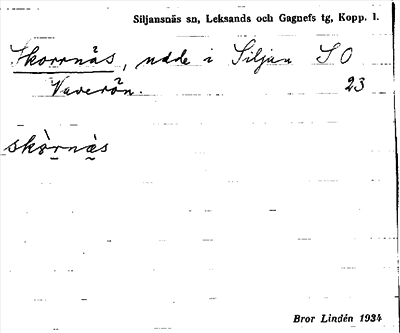 Siljansnäs sn, Leksands och Gagnefs tg, Kopp. l.
Skorrnäs, udde i Siljan S O
Vaverön. 23
skòrnàs
Bror Lindén 1934